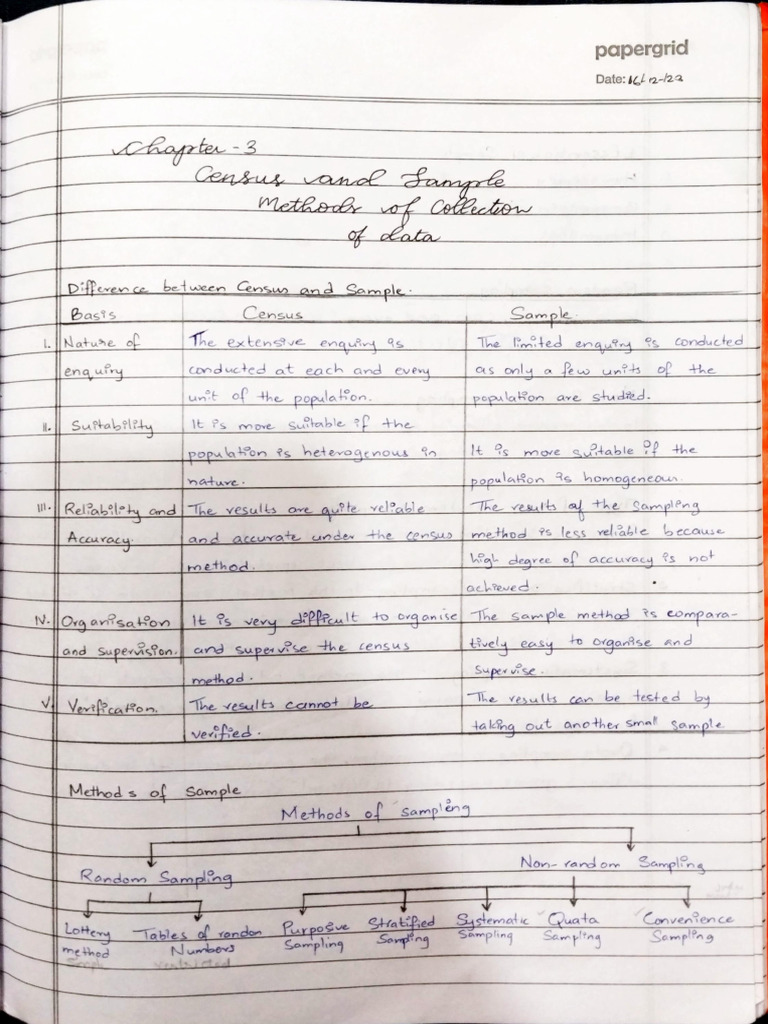 papergrid
Date: 16/12/22
Chapter - 3
Census and Sample
Methods of Collection
of data
Difference between Census and Sample.
Basis Census Sample.
I. Nature of enquiry
The extensive enquiry is
conducted at each and every
unit of the population.
The limited enquiry is conducted
as only a few units of the
population are studied.
II. Suitability
It is more suitable if the
population is heterogenous in
nature.
It is more suitable if the
population is homogeneous.
III. Reliability and
Accuracy.
The results are quite reliable
and accurate under the census
method.
The results of the sampling
method is less reliable because
high degree of accuracy is not
achieved.
IV. Organisation
and supervision.
It is very difficult to organise
and supervise the census
method.
The sample method is compara-
tively easy to organise and
supervise.
V. Verification.
The results cannot be
verified.
The results can be tested by
taking out another small sample
Methods of Sample
Methods of sampling
Random Sampling
Non-random Sampling
Lottery
method
Tables of random
Numbers
Purposive
Sampling
Stratified
Sampling
Systematic
Sampling
Quata
Sampling
Convenience
Sampling